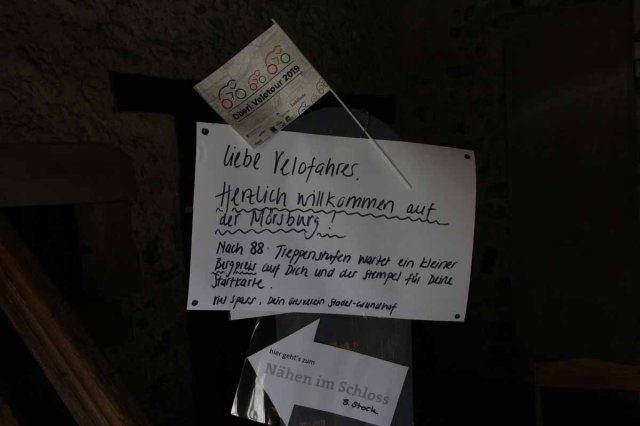 Oberi-Velotour 2019
Liebe Velofahrer,
Herzlich willkommen auf
der Mörsburg!
Nach 88 Treppenstufen wartet ein kleiner
Bergpreis auf Dich und der Stempel für Deine
Startkarte.
Viel Spass, Dein Ortsverein Stadel-Grundhof
hier geht's zum
Nähen im Schloss
3. Stock